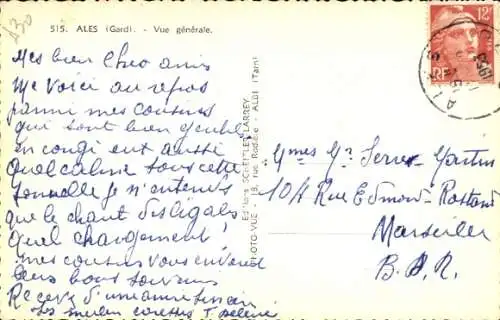 515. ALES (Gard). - Vue générale.
Mes bien Chers amis
Me Voici au repos
parmi mes cousins
qui sont bien gentils
en congé eux aussi
Quel calme sous cette
tonnelle je n'entends
que le chant des cigales
Quel changement!
mes cousins vous envoient
leurs bons souvenirs
Recevez d'une amie sincère
les meilleures caresses
Editions SCHETTLE, LARREY
PHOTO-VUE - 18, rue Rochegude - ALBI (Tarn)
12F
RF
Mmes Serre - Martin
104 Rue Edmond-Rostand
Marseille
B. d. R.